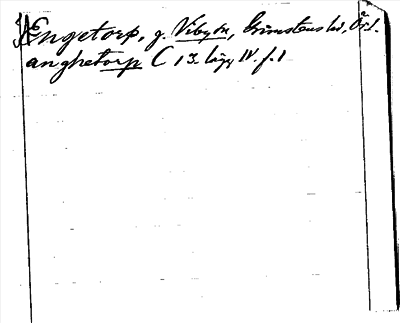 Engetorp, g. Viby sn, Grimstens hd, Ör. l.
anghetorp C 13. lägg IV. f. 1